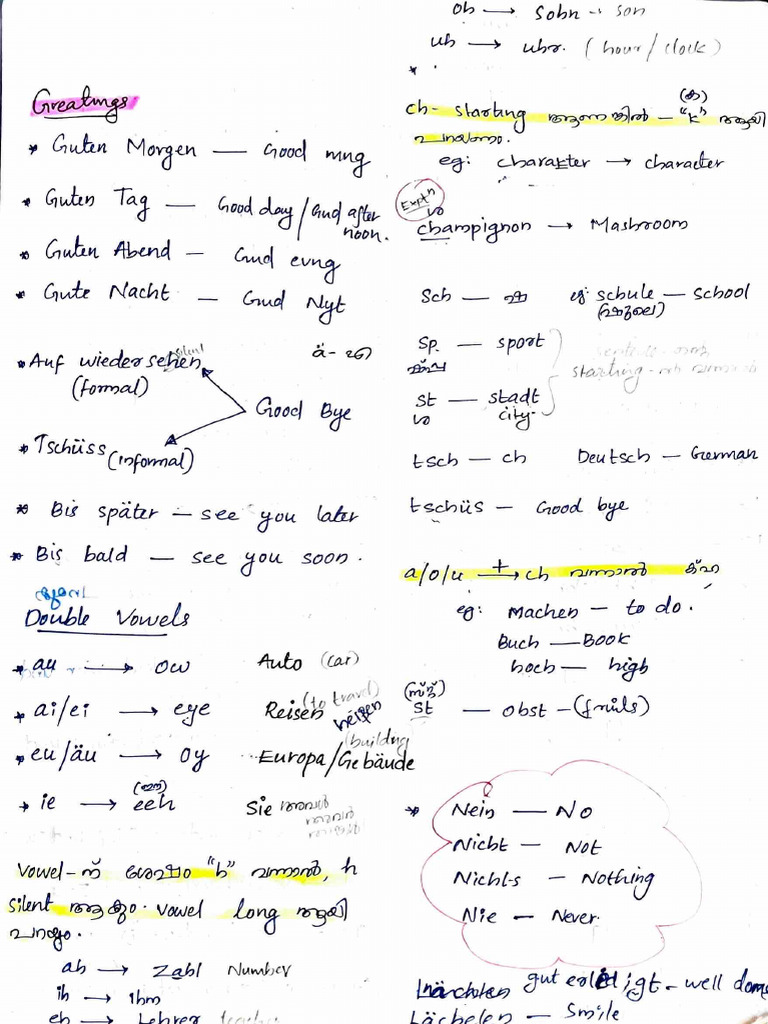 Greatings
* Guten Morgen — Good mng
* Guten Tag — Good day/Gud after noon.
* Guten Abend — Gud evng
* Gute Nacht — Gud Nyt
ä - ഏ
* Auf wiedersehen silent
(formal)
Good Bye
* Tschüss (informal)
* Bis später — see you later
* Bis bald — see you soon.
Double Vowels
* au → ow Auto (car)
* ai/ei → eye Reisen (to travel) heisen
* eu/äu → oy Europa/Gebäude (building
* ie → eeh (ഈ) Sie അവൾ
Vowel-ന് ശേഷം "h" വന്നാൽ, h
silent ആകും. vowel long ആയി
പറയും.
ah → Zahl Number
ih → ihm
eh → Lehrer teacher
oh → Sohn - son
uh → uhr. (hour/clock)
*
ch- starting ആണെങ്കിൽ — (ക) "k" ആയി
പറയണം.
eg: charakter → character
Exptn
champignon → Mashroom
Sch — ഷ eg: schule — school
(ഷൂലെ)
Sp — sport
st — stadt
city
starting-ൽ
tsch — ch Deutsch — German
tschüs — Good bye
a/o/u + → ch വന്നാൽ ക്ഹ
eg: Machen — to do.
Buch — BOOK
hoch — high
(സ്റ്റ്)
st — obst - (fruits)
* Nein — NO
Nicht — Not
Nichts — Nothing
Nie — Never.
gut erledigt - well done
Lächelen — Smile